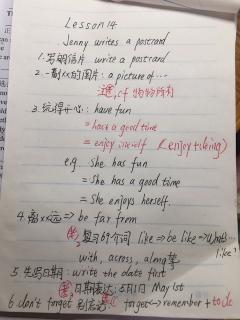 Lesson 14
Jenny writes a postcard
1. 写明信片 write a postcard
2. 一副xx的图片: a picture of ...
of 物物所有
3. 玩得开心: have fun
= have a good time
= enjoy oneself (enjoy+doing)
e.g. She has fun
= She has a good time
= She enjoys herself.
4. 离xx远 => be far from
复习69个词 like => be like => What's ... like?
with, across, along等
5. 先写日期: write the date first
日期表达: 5月1日 May 1st
6. don't forget 别忘记 forget <-> remember + to do